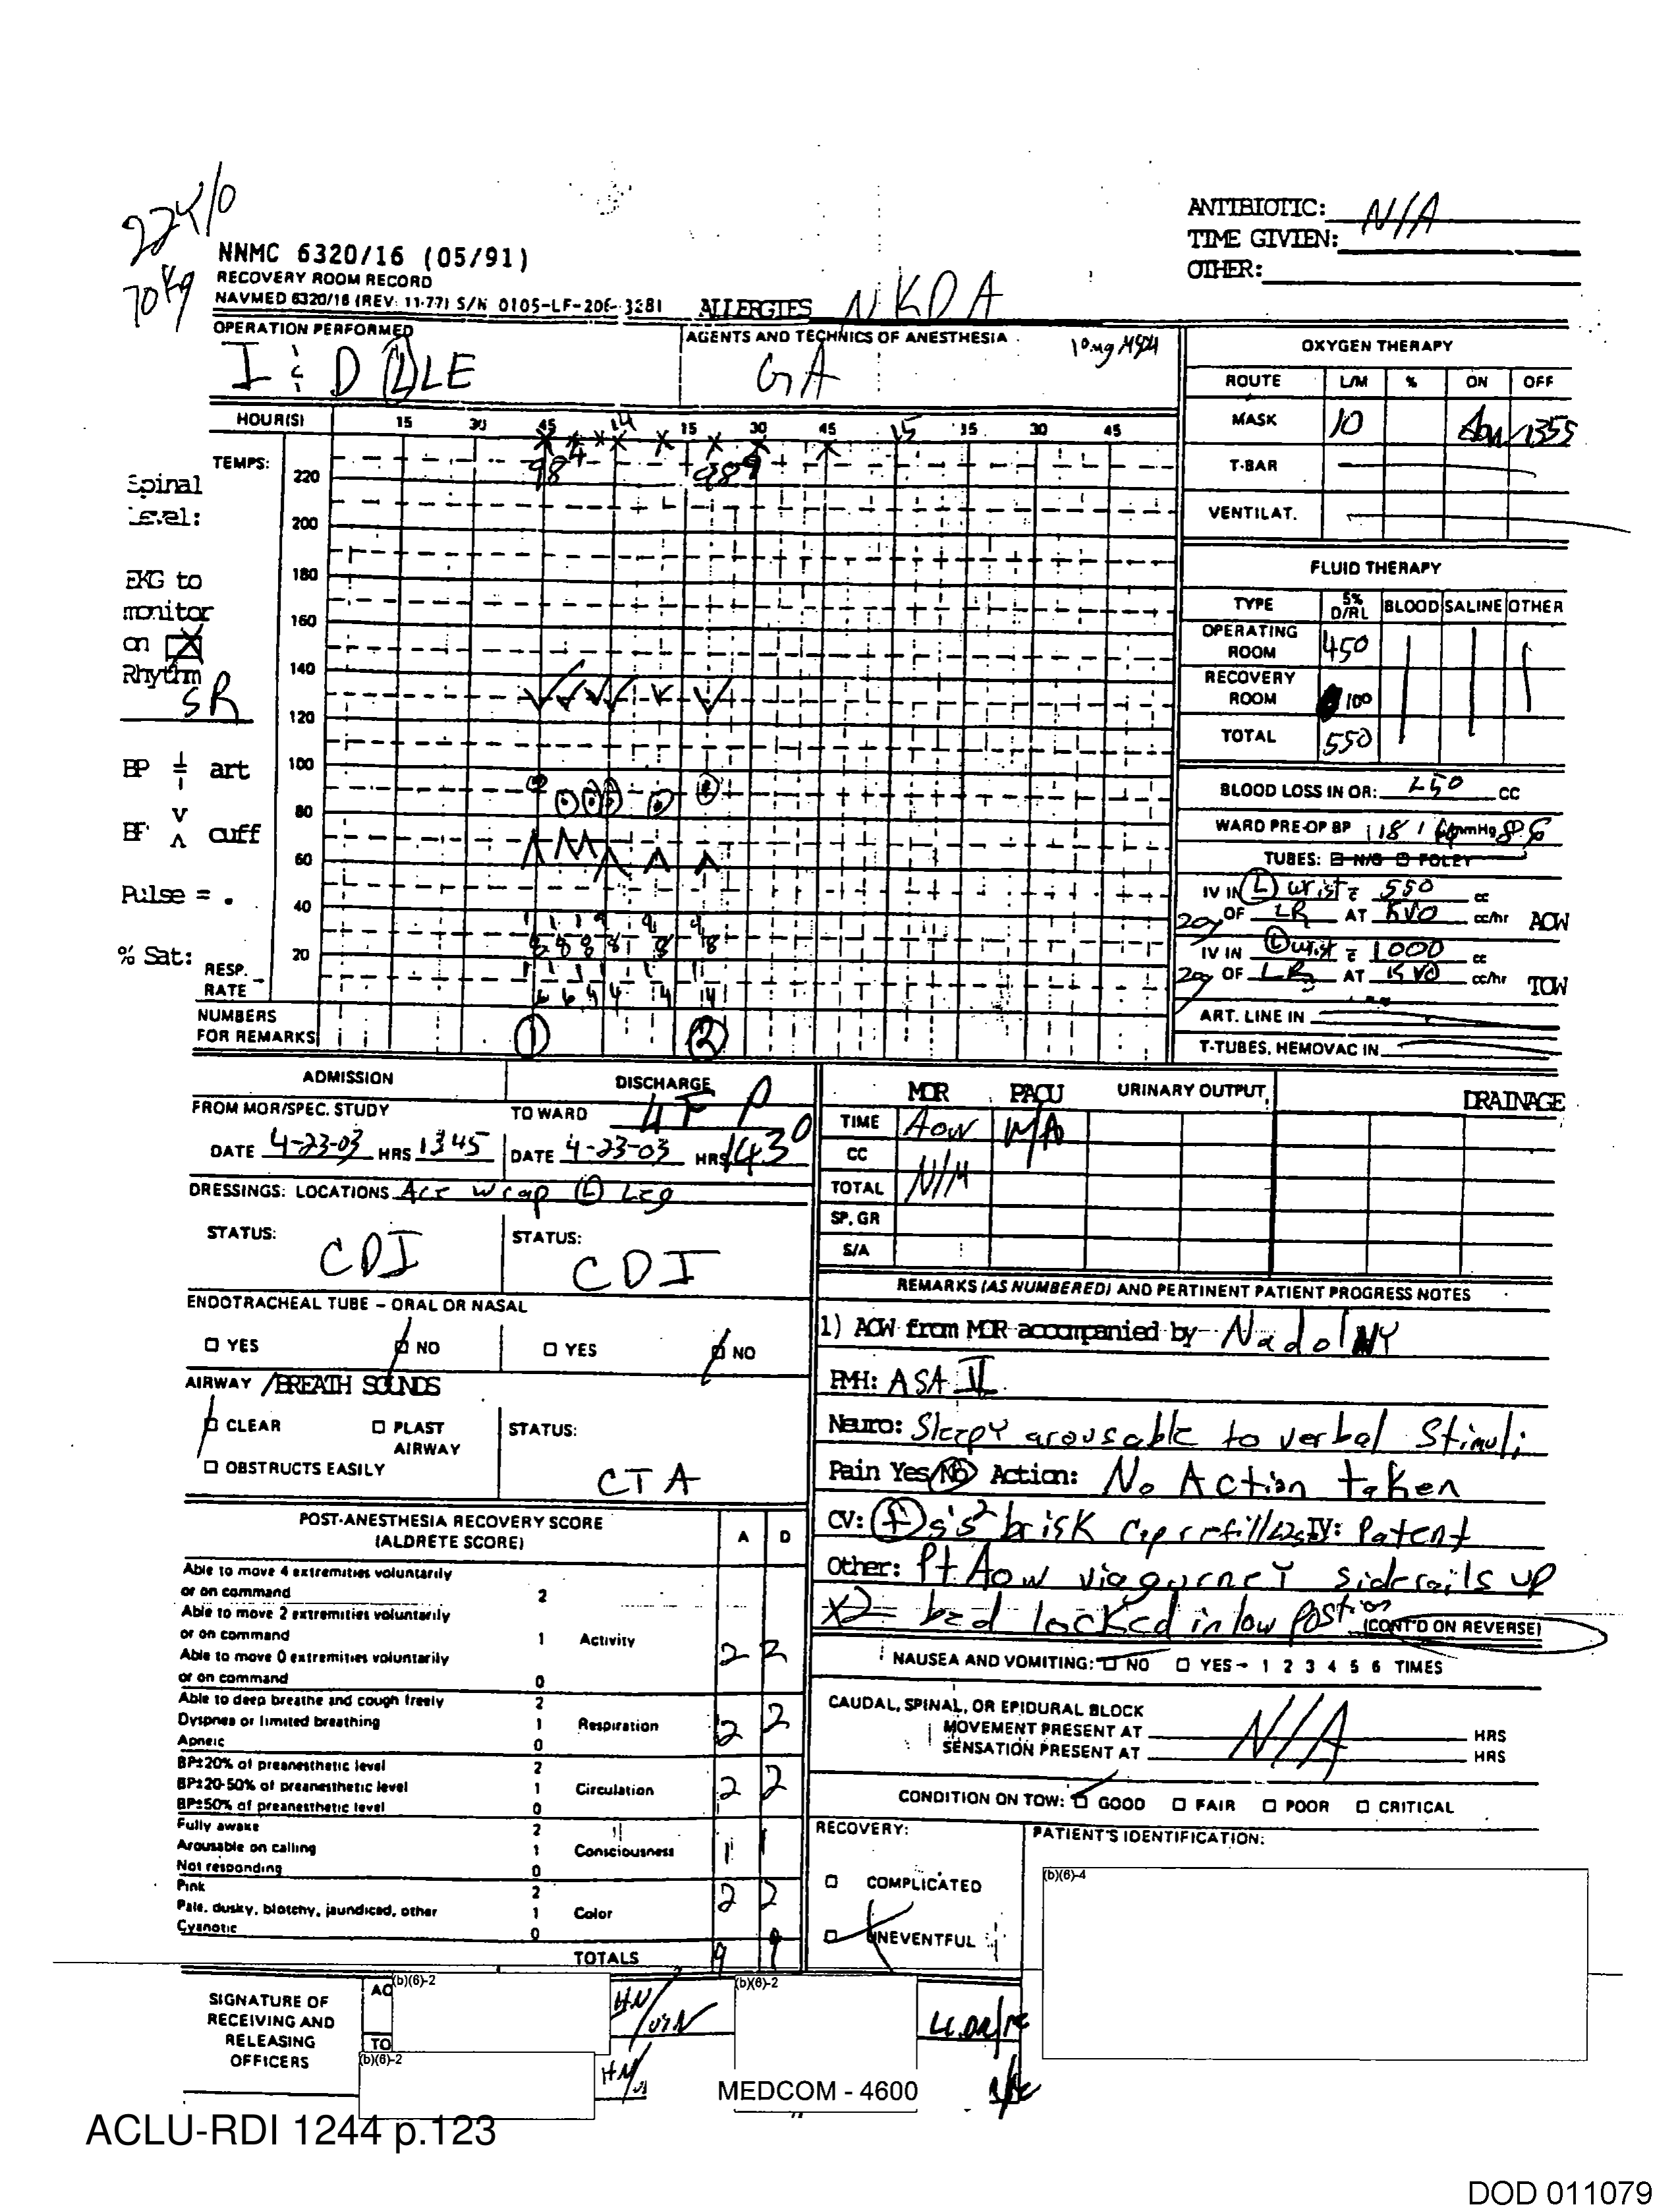 22410
70kg
NNMC 6320/16 (05/91)
RECOVERY ROOM RECORD
NAVMED 6320/16 (REV: 11-77) S/N 0105-LF-206-3281
ALLERGIES NKDA
ANTIBIOTIC: N/A
TIME GIVIEN:
OTHER:
OPERATION PERFORMED
I & D (L) LE
AGENTS AND TECHNICS OF ANESTHESIA
GA
10mg MSO4
OXYGEN THERAPY
ROUTE L/M % ON OFF
MASK 10 Aow 1355
T-BAR
VENTILAT.
HOUR(S) 15 30 45 14 15 30 45 15 15 30 45
TEMPS: 98 4 98 9
Spinal
Level:
220
200
180
160
140
120
100
80
60
40
20
EKG to
monitor
on
Rhythm
SR
BP art
V
BP Λ cuff
Pulse = .
% Sat:
RESP.
RATE
NUMBERS
FOR REMARKS
1 2
FLUID THERAPY
TYPE 5% D/RL BLOOD SALINE OTHER
OPERATING ROOM 450
RECOVERY ROOM 100
TOTAL 550
BLOOD LOSS IN OR: <50 CC
WARD PRE-OP BP 118 / 64 mmHg
TUBES: N/G FOLEY
IV IN (L) wrist c 550 cc
20g OF LR AT KVO cc/hr AOW
IV IN (L) wrist c 1000 cc
20g OF LR AT KVO cc/hr TOW
ART. LINE IN
T-TUBES, HEMOVAC IN
ADMISSION
FROM MOR/SPEC. STUDY
DATE 4-23-03 HRS 1345
DISCHARGE
TO WARD 4FP
DATE 4-23-03 HRS 1430
DRESSINGS: LOCATIONS Ace wrap (L) Leg
STATUS: CDI
STATUS: CDI
ENDOTRACHEAL TUBE - ORAL OR NASAL
YES NO YES NO
AIRWAY /BREATH SOUNDS
CLEAR PLAST AIRWAY
OBSTRUCTS EASILY
STATUS: CTA
MOR PACU URINARY OUTPUT DRAINAGE
TIME Aow N/A
CC
TOTAL N/A
SP. GR
S/A
REMARKS (AS NUMBERED) AND PERTINENT PATIENT PROGRESS NOTES
1) AOW from MOR accompanied by Nadolny
PMH: ASA II
Neuro: Sleepy arousable to verbal Stimuli
Pain Yes/No Action: No Action taken
CV: brisk cap refill IV: Patent
Other: Pt Aow via gurney siderails up
x2 bed locked in low Postion
(CONT'D ON REVERSE)
NAUSEA AND VOMITING: NO YES - 1 2 3 4 5 6 TIMES
CAUDAL, SPINAL, OR EPIDURAL BLOCK
MOVEMENT PRESENT AT N/A HRS
SENSATION PRESENT AT HRS
CONDITION ON TOW: GOOD FAIR POOR CRITICAL
POST-ANESTHESIA RECOVERY SCORE
(ALDRETE SCORE) A D
Able to move 4 extremities voluntarily
or on command 2
Able to move 2 extremities voluntarily
or on command 1 Activity 2 2
Able to move 0 extremities voluntarily
or on command 0
Able to deep breathe and cough freely 2
Dyspnea or limited breathing 1 Respiration 2 2
Apneic 0
BP±20% of preanesthetic level 2
BP±20-50% of preanesthetic level 1 Circulation 2 2
BP±50% of preanesthetic level 0
Fully awake 2
Arousable on calling 1 Consciousness 1 1
Not responding 0
Pink 2
Pale, dusky, blotchy, jaundiced, other 1 Color 2 2
Cyanotic 0
TOTALS 9 9
RECOVERY:
COMPLICATED
UNEVENTFUL
PATIENT'S IDENTIFICATION:
(b)(6)-4
SIGNATURE OF
RECEIVING AND
RELEASING
OFFICERS
AO (b)(6)-2 HN/USN (b)(6)-2 LCDR/NC
TO
(b)(6)-2 HN
MEDCOM - 4600
ACLU-RDI 1244 p.123
DOD 011079